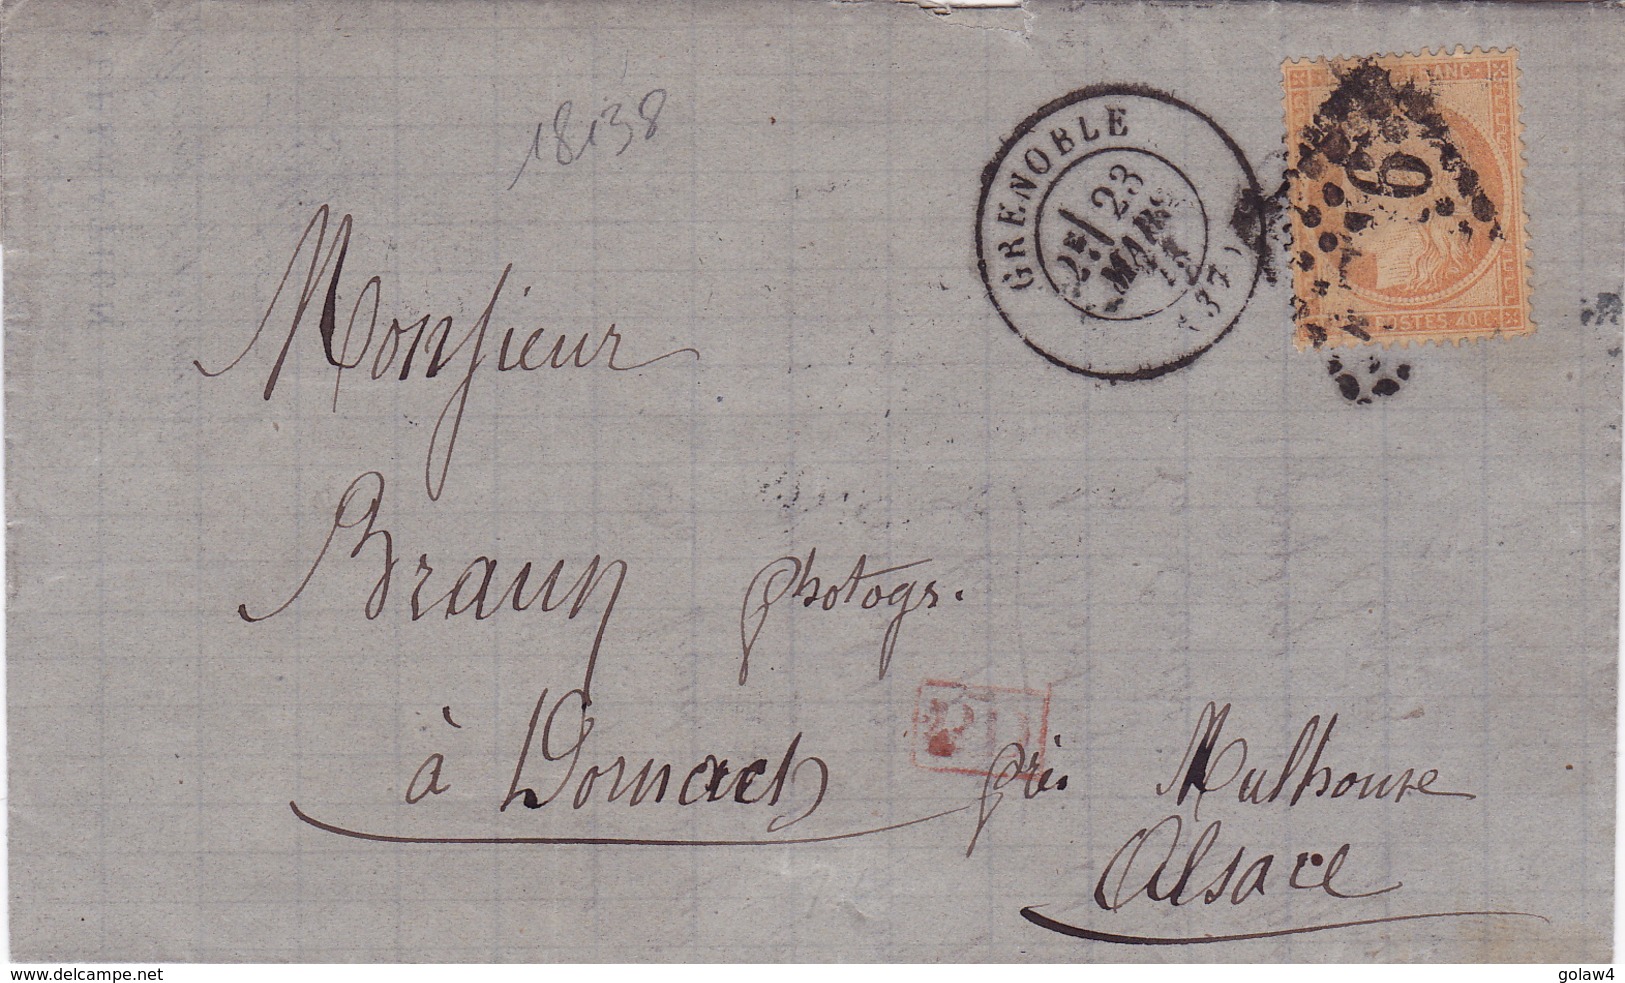 18138
GRENOBLE
2E/ 23
MARS
(37)
POSTES 40 C
Monsieur
Braun photogr.
PD
à Dornach près Mulhouse
Alsace
www.delcampe.net
golaw4